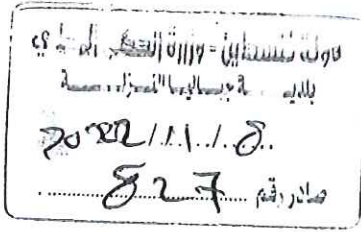 دولة فلسطين - وزارة الحكم المحلي
بلدية
2022/11/8
صادر رقم 827